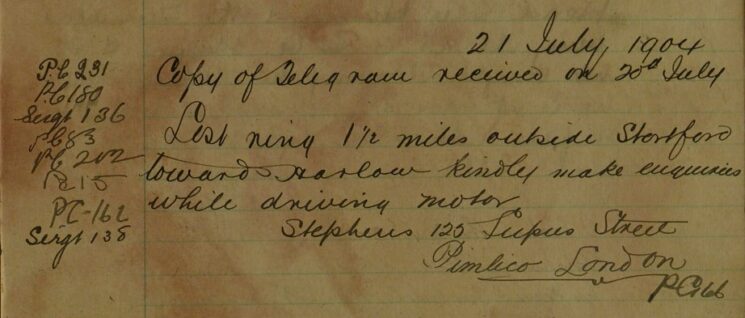 21 July, 1904
P.C 231
P.C 180
Sergt 136
P.C 83
P.C 202
1215
PC-162
Sergt 138
Copy of Telegram received on 20th July
Lost ring 1½ miles outside Stortford
toward Harlow kindly make enquiries
while driving motor
Stephens 125 Lupus Street
Pimlico London
PC 166